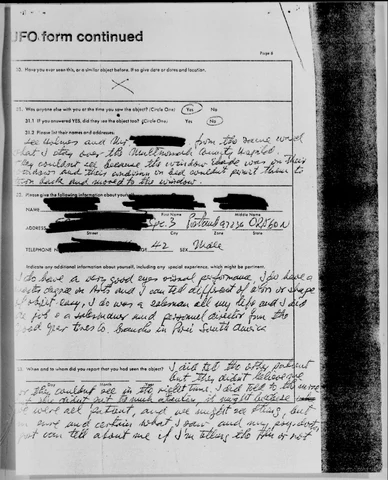 UFO form continued
Page 6
20. Have you ever seen this, or a similar object before. If so give date or dates and location.
21. Was anyone else with you at the time you saw the object? (Circle One) Yes No
21.1 If you answered YES, did they see the object too? (Circle One) Yes No
21.2 Please list their names and addresses:
Lee Holmes and Mrs from the same ward
that I stay over the Multnomah County Hospital.
They couldn't see because the window shade was on their
windows and their condition on bed couldn't permit them to
back and moved to the window.
22. Please give the following information about yourself:
NAME
First Name Middle Name
ADDRESS Spc. 3 Portland 97236 OREGON
Street City Zone State
TELEPHONE 42 SEX Male
Indicate any additional information about yourself, including any special experience, which might be pertinent.
I do have a very good eyes visual performance. I do have a
degree on Arts and I can tell different of a or shape
of object easy, I do was a salesman all my life and I did
job as salesmanager and personnel director from the
Good year tires Co. branch in Perú South America
23. When and to whom did you report that you had seen the object?
Day Month
I did tell the other patient
but they didn't believe me
or they couldn't see in the right time. I did tell to the nurse
she didn't put to much attention, it might because
we were all patient, and we might see thing, but
sure and certain what I saw and my psy. doct.
can tell about me if I'm telling the or not